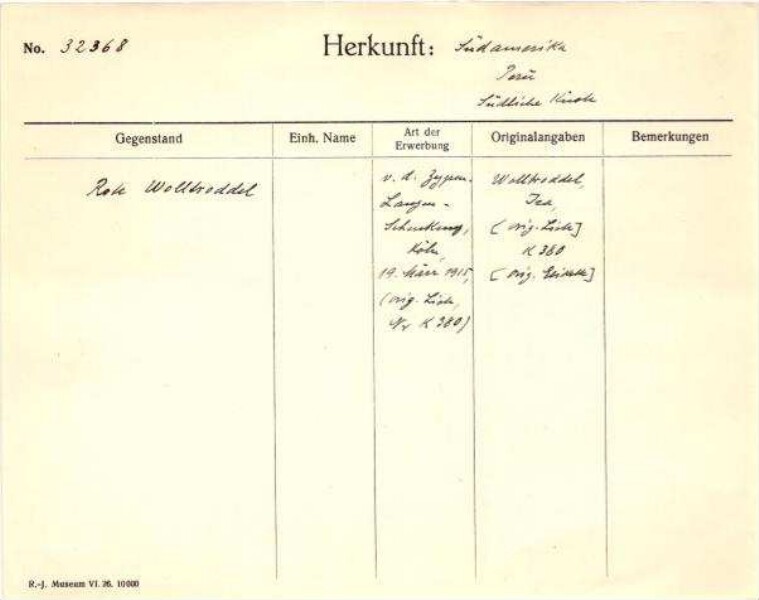 No. 32368
Herkunft: Südamerika
Perü
Südliche Küste
Gegenstand
Einh. Name
Art der
Erwerbung
Originalangaben
Bemerkungen
Rote Wolltroddel
v. d. Zypen-
Langen-
Schenkung,
Köln,
19. März 1915,
(orig. Liste,
Nr K 380)
Wolltroddel,
Ica,
[orig. Liste]
K 380
[orig. Etikette]
R.-J. Museum VI. 26. 10000